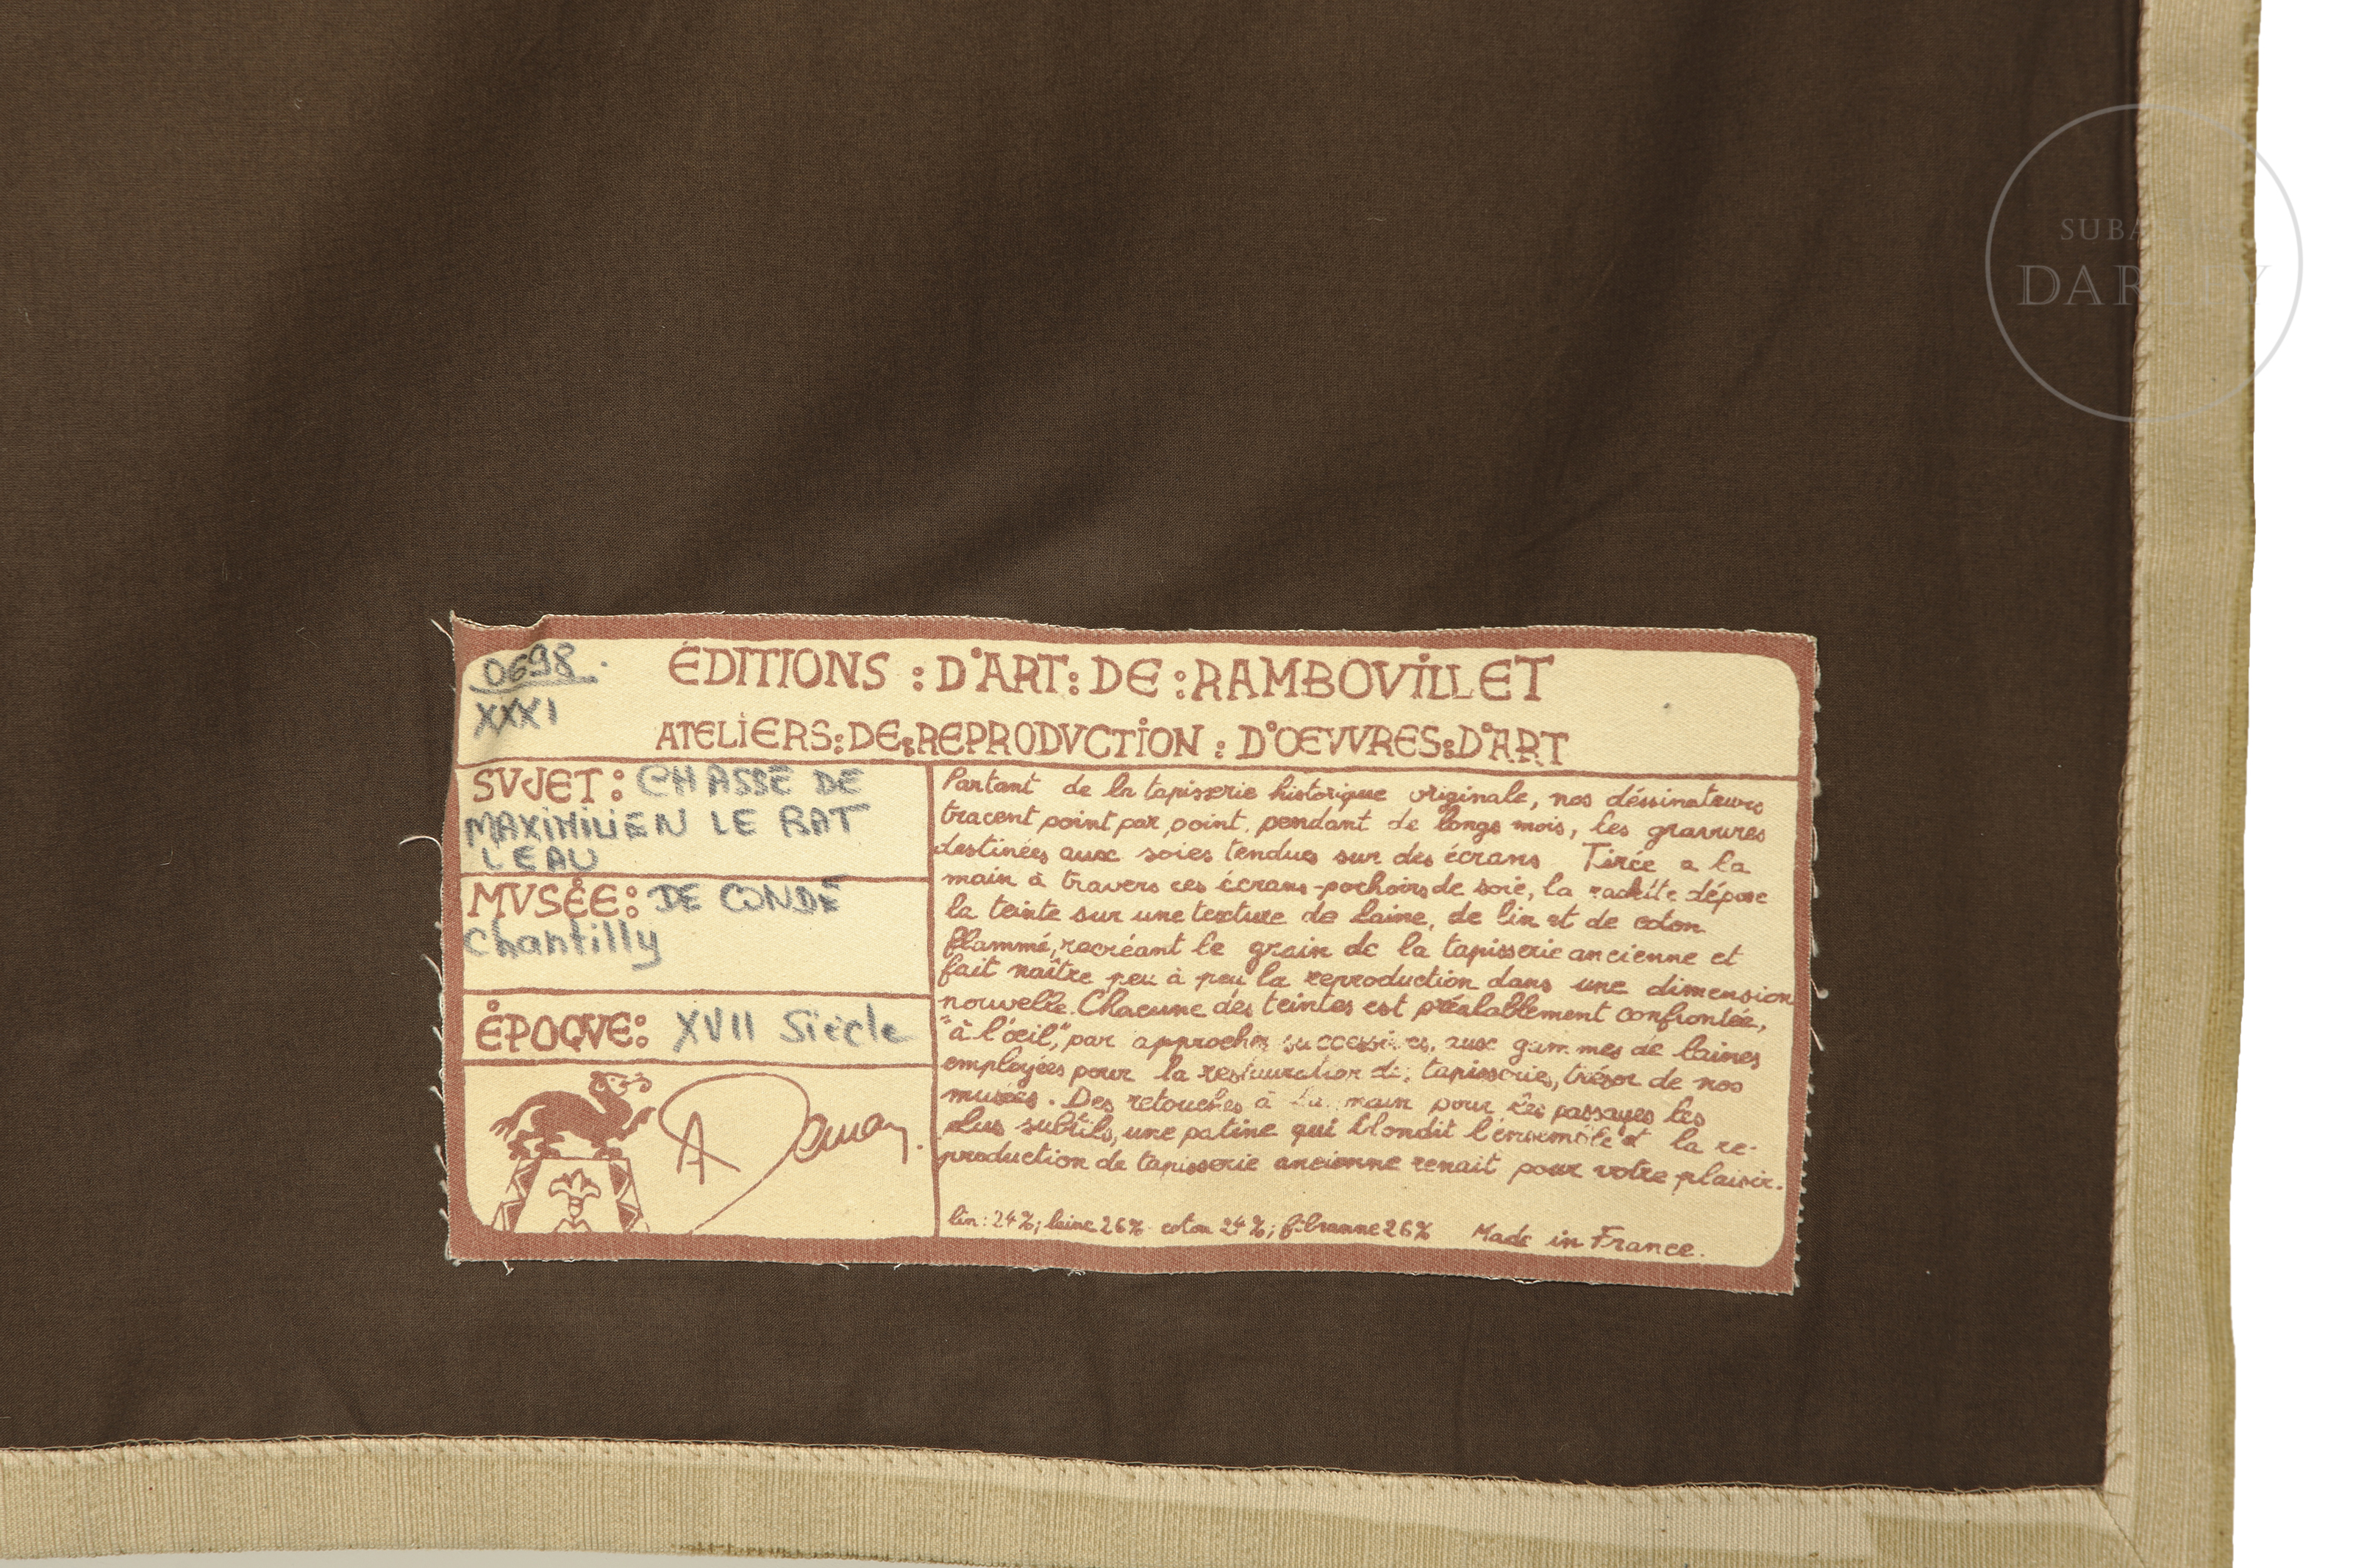 SUBA
DARLEY
0698.
XXXI
ÉDITIONS : D'ART : DE : RAMBOVILLET
ATELIERS : DE : REPRODVCTION : D'OEVVRES : D'ART
SVJET : CHASSE DE
MAXIMILIEN LE BAT
L'EAU
MVSÉE : DE CONDÉ
Chantilly
ÉPOQVE : XVII Siècle
Partant de la tapisserie historique originale, nos déssinateurs
tracent point par point, pendant de longs mois, les gravures
destinées aux soies tendues sur des écrans. Tirée a la
main à travers ces écrans-pochoirs de soie, la raclette dépose
la teinte sur une texture de laine, de lin et de coton
flammé, recréant le grain de la tapisserie ancienne et
fait naître peu à peu la reproduction dans une dimension
nouvelle. Chacune des teintes est préalablement confrontée,
"à l'œil", par approches successives, aux gammes de laines
employées pour la restauration de tapisseries, trésor de nos
musées. Des retouches à la main pour les passages les
plus subtils, une patine qui blondit l'ensemble et la re-
production de tapisserie ancienne renait pour votre plaisir.
lin : 24%; laine 26% coton 24%; fibranne 26% Made in France.